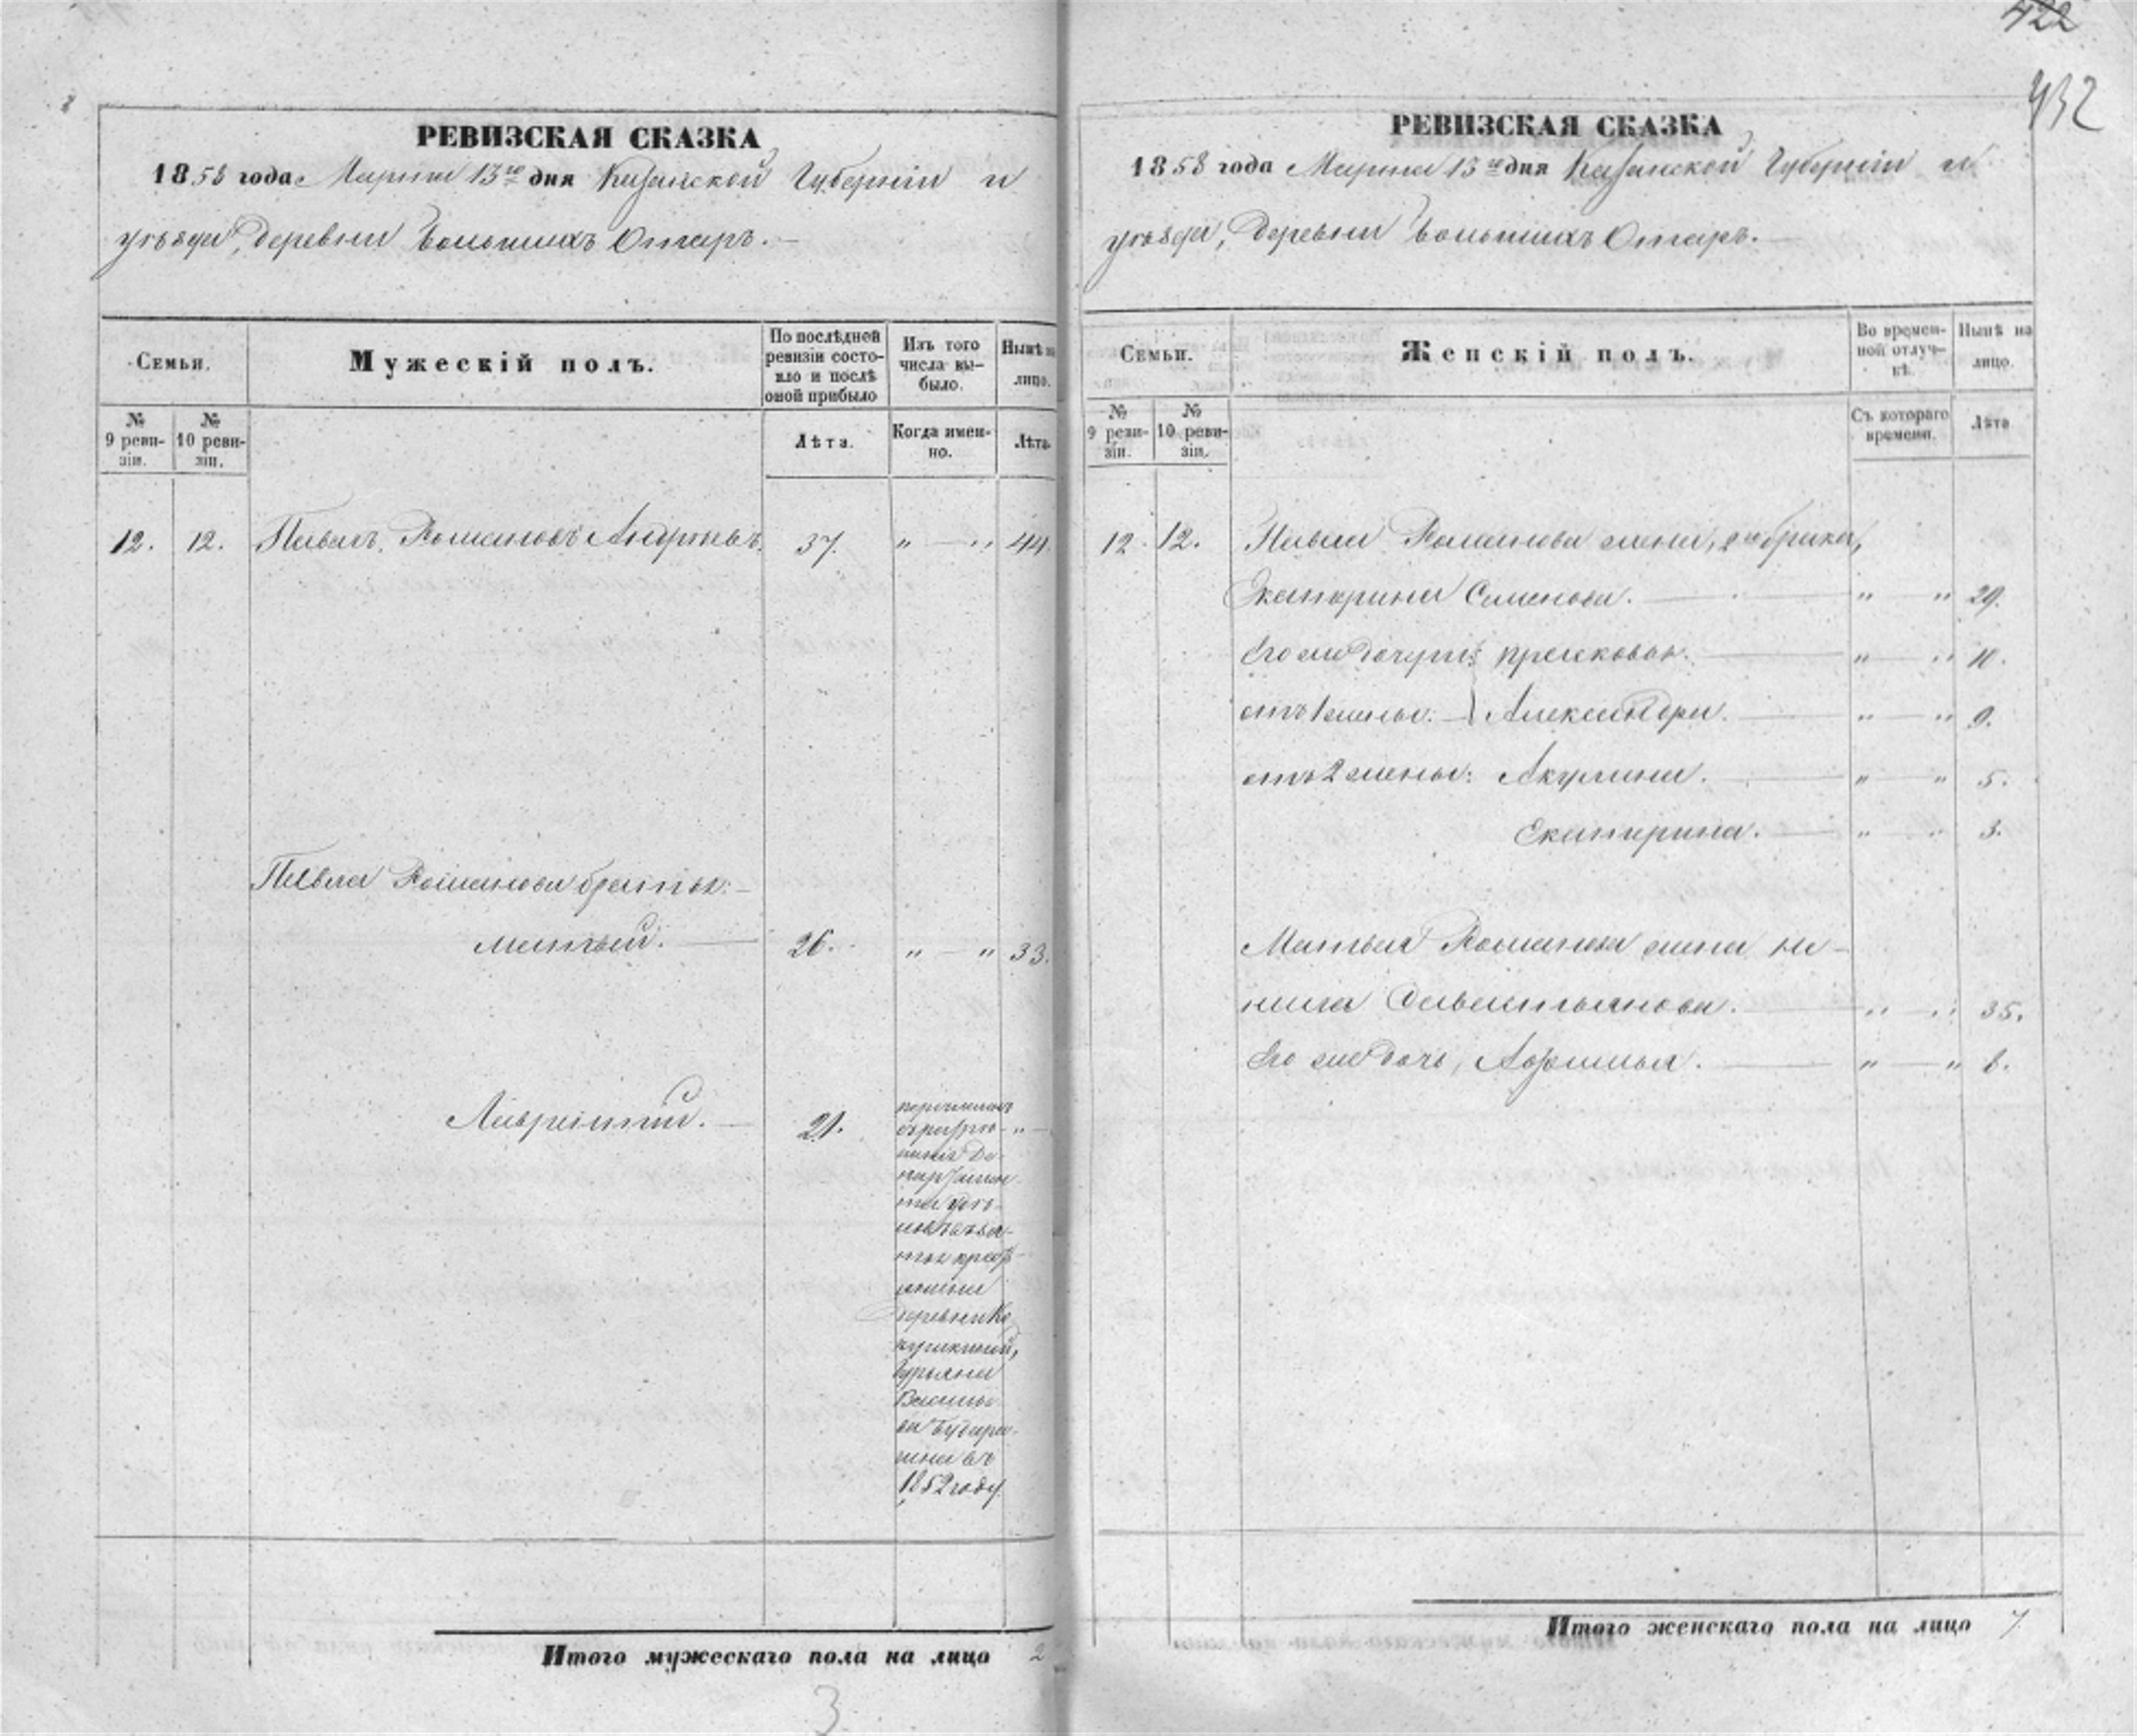 422
432
РЕВИЗСКАЯ СКАЗКА
1858 года Марта 13го дня Казанской Губерніи и
уѣзда, деревни Большихъ Отаръ.
Семьи.
Мужескій полъ.
По послѣдней ревизіи состояло и послѣ оной прибыло
Изъ того числа вы-было.
Нынѣ на лицо.
№ 9 реви-зіи.
№ 10 реви-зіи.
Лѣта.
Когда имен-но.
Лѣта
12. 12. Павелъ Романовъ Андреевъ. 37. " — " 44.
Павла Романова братья:
Матвей. 26. " — " 33.
Лаврентій. 21. "
перечисленъ
съ разрѣ-
шенія Де-
партамен-
та Удѣ-
ловъ
деревни Ко-
Гурьяна
Василье-
ва
въ
1852 году
Итого мужескаго пола на лицо 2
3
РЕВИЗСКАЯ СКАЗКА
1858 года Марта 13го дня Казанской Губерніи и
уѣзда, деревни Большихъ Отаръ.
Семьи.
Женскій полъ.
Во времен-ной отлуч-кѣ.
Нынѣ на лицо.
№ 9 реви-зіи.
№ 10 реви-зіи.
Съ котораго времени.
Лѣта
12. 12. Павла Романова жена, 2го брака,
Екатерина Семенова. " " 29.
Его же дочери: Прасковья. " " 11.
отъ 1 жены. Александра. " " 9.
отъ 2 жены: Акулина. " " 5.
Екатерина. " " 3.
Матвея Романова жена Не-
нила Савантьянова. " " 35.
Его же дочь, Афимья. " " 8.
Итого женскаго пола на лицо 7.